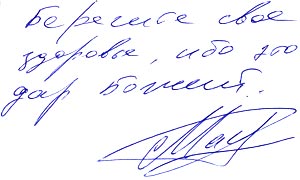 Берегите свое
здоровье, ибо это
дар Божий.